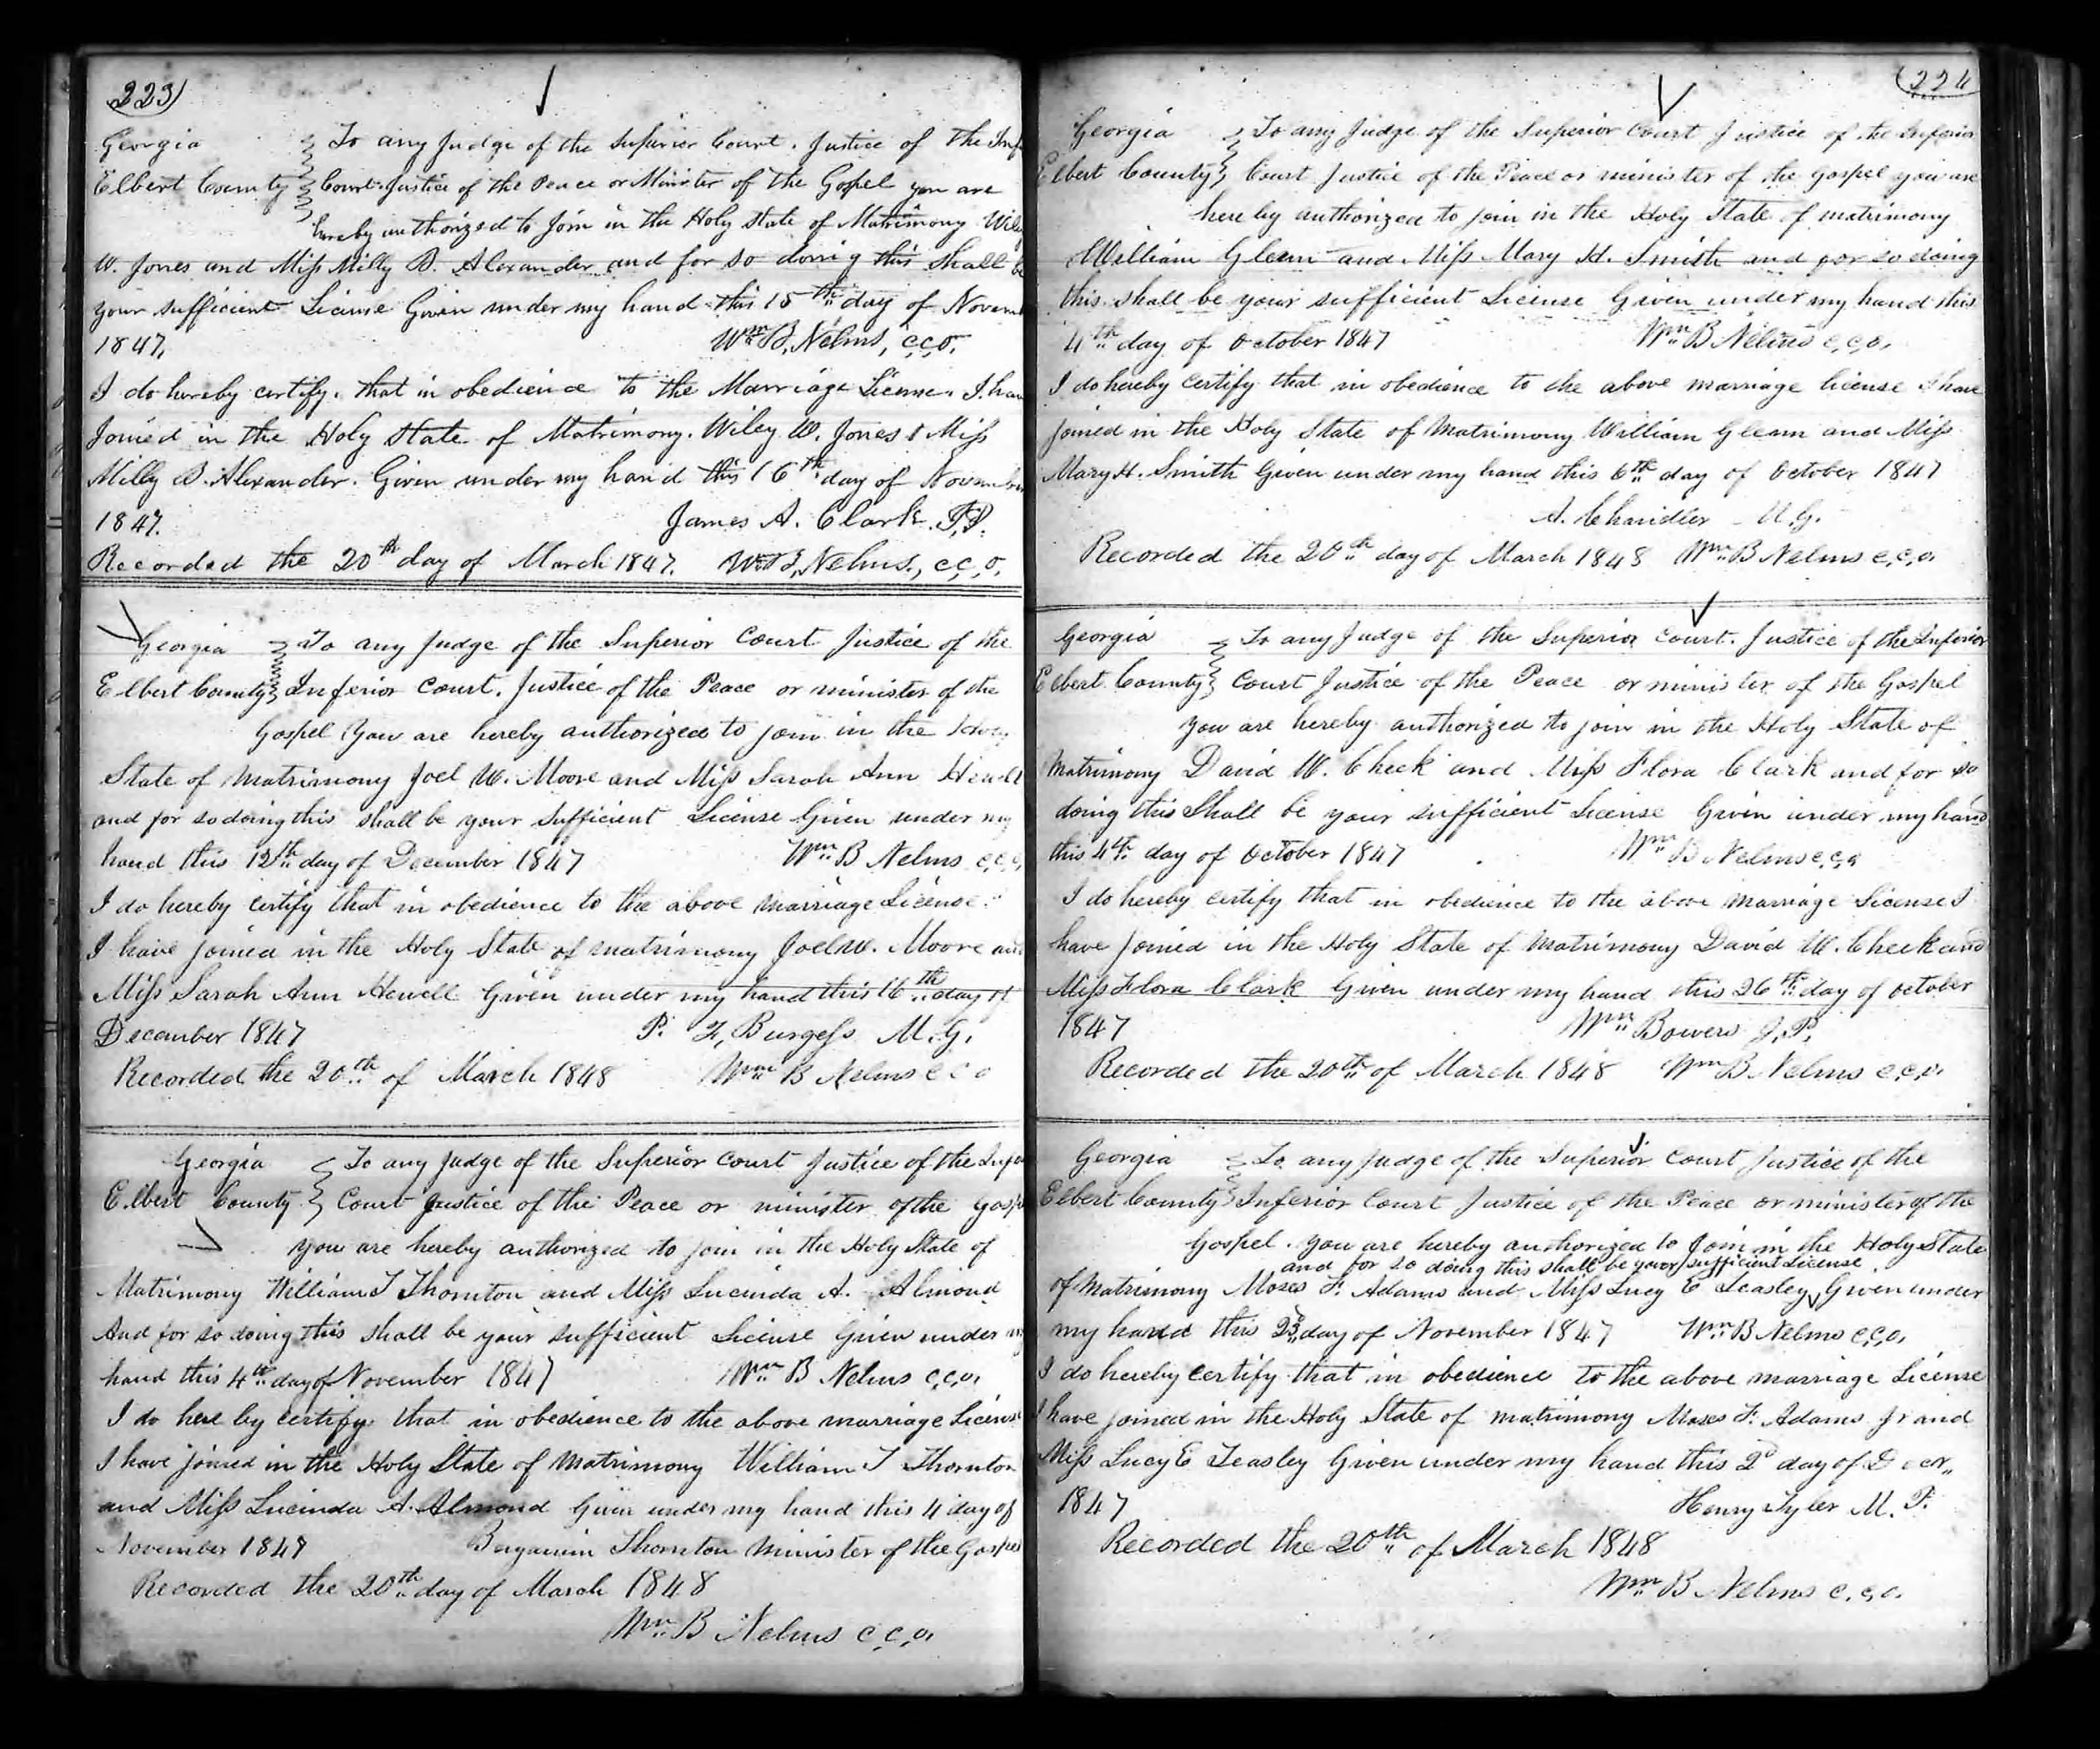 223
Georgia To any Judge of the Superior Court. Justice of the Inf
Elbert County Court Justice of the Peace or Minister of the Gospel you are
hereby authorized to Join in the Holy State of Matrimony Wiley
W. Jones and Miss Milly B. Alexander and for so doing this shall be
your sufficient License Given under my hand this 15th day of Novem
1847. Wm B, Nelms, c,c,o,
I do hereby certify, that in obedience to the Marriage License. I have
Joined in the Holy State of Matrimony. Wiley W. Jones & Miss
Milly B. Alexander. Given under my hand this 16th day of November
1847. James A. Clark. J,P.
Recorded the 20th day of March 1847. Wm B, Nelms., c,c,o,
Georgia To any Judge of the Superior Court Justice of the
Elbert County Inferior Court. Justice of the Peace or minister of the
Gospel You are hereby authorized to join in the Holy
State of Matrimony Joel W. Moore and Miss Sarah Ann Hewell
and for so doing this shall be your Sufficient License Given under my
hand this 12th day of December 1847 Wm B Nelms c,c,o,
I do hereby certify that in obedience to the above Marriage License.
I have joined in the Holy State of matrimony Joel W. Moore and
Miss Sarah Ann Hewell Given under my hand this 16th day of
December 1847 P. F, Burgess M. G.
Recorded the 20th of March 1848 Wm B Nelms c c o
Georgia To any Judge of the Superior Court Justice of the Infe
Elbert County Court Justice of the Peace or minister of the Gosp
you are hereby authorized to join in the Holy State of
Matrimony William T Thornton and Miss Lucinda A. Almond
And for so doing this shall be your sufficient License Given under my
hand this 4th day of November 1847 Wm B Nelms c,c,o,
I do here by certify that in obedience to the above marriage License
I have joined in the Holy State of Matrimony William T Thornton
and Miss Lucinda A. Almond Given under my hand this 4 day of
November 1847 Benjamin Thornton Minister of the Gospel
Recorded the 20th day of March 1848
Wm B Nelms c,c,o,
224
Georgia To any Judge of the Superior Court Justice of the Inferior
Elbert County Court Justice of the Peace or minister of the gospel you are
here by authorized to join in the Holy State of matrimony
William Glenn and Miss Mary H. Smith and for so doing
this shall be your sufficient License Given under my hand this
4th day of October 1847 Wm B Nelms c,c,o,
I do hereby certify that in obedience to the above marriage license I have
joined in the Holy State of Matrimony William Glenn and Miss
Mary H. Smith Given under my hand this 6th day of October 1847
A. Chandler M. G.
Recorded the 20th day of March 1848 Wm B Nelms c,c,o,
Georgia To any Judge of the Superior Court. Justice of the Inferior
Elbert County Court Justice of the Peace or minister of the Gospel
you are hereby authorized to join in the Holy State of
Matrimony David W. Cheek and Miss Flora Clark and for so
doing this Shall be your sufficient License Given under my hand
this 4th day of October 1847 Wm B Nelms c,c,o
I do hereby certify that in obedience to the above marriage License I
have joined in the Holy State of Matrimony David W. Cheek and
Miss Flora Clark Given under my hand this 26th day of October
1847 Wm Bowers J. P.
Recorded the 20th of March 1848 Wm B Nelms c,c,o,
Georgia To any Judge of the Superior Court Justice of the
Elbert County Inferior Court Justice of the Peace or minister of the
Gospel. you are hereby authorized to Join in the Holy State
and for so doing this shall be your sufficient License
of Matrimony Moses F. Adams and Miss Lucy E Teasley Given under
my hand this 23 day of November 1847 Wm B Nelms c,c,o,
I do hereby certify that in obedience to the above marriage License
I have joined in the Holy State of matrimony Moses F. Adams Jr and
Miss Lucy E Teasley Given under my hand this 2d day of Decr,,
1847 Henry Tyler M. P.
Recorded the 20th of March 1848
Wm B Nelms c,c,o.